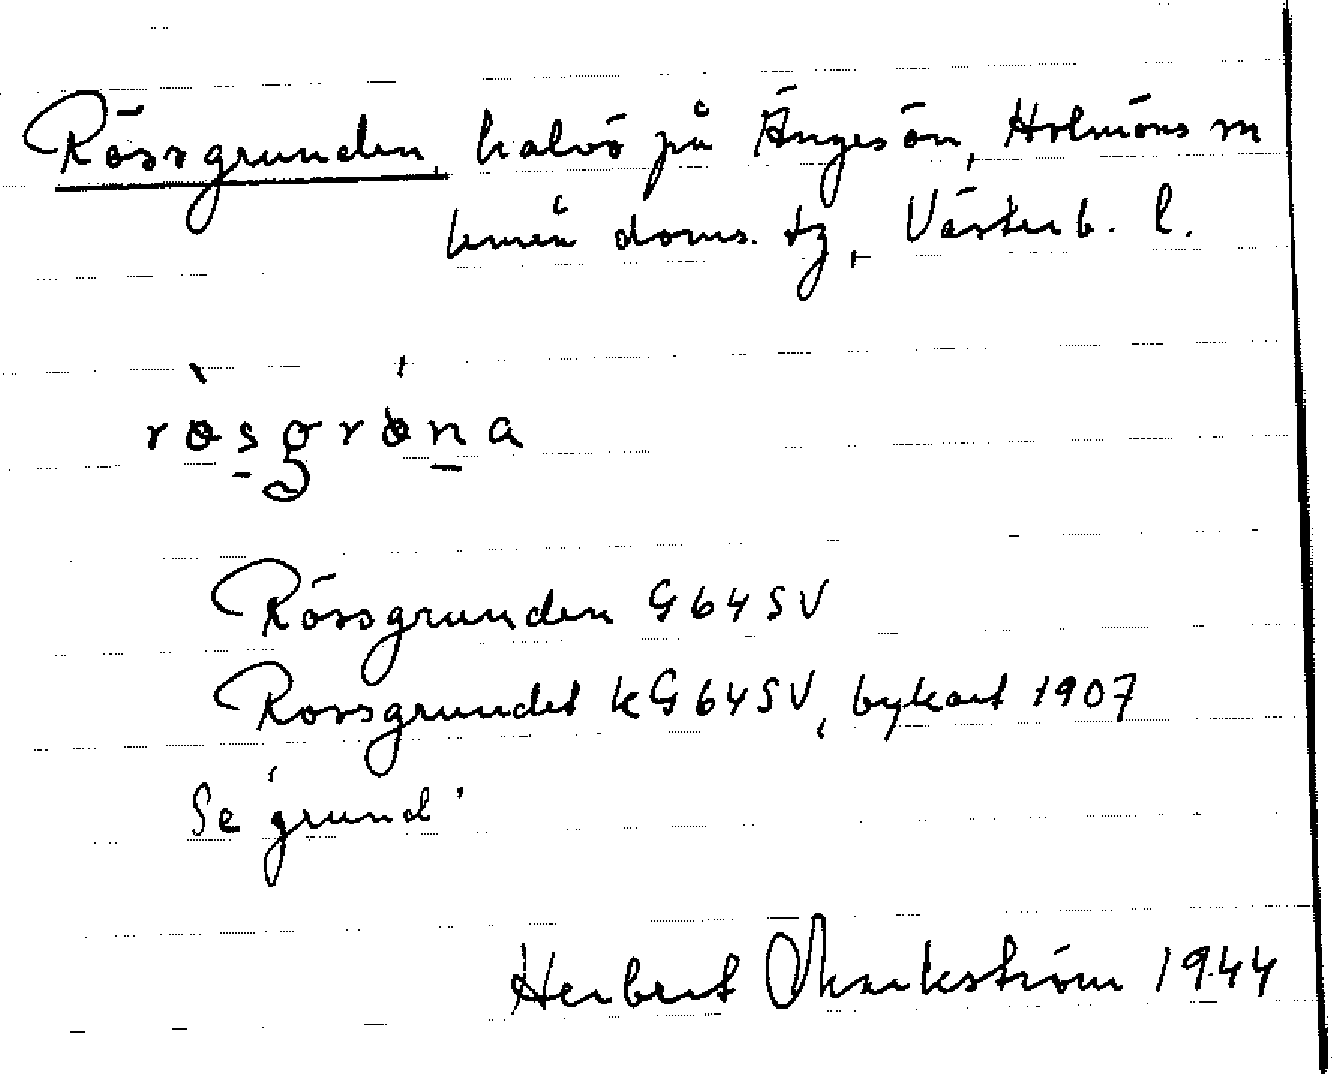 Rössgrunden, halvö på Ängesön, Holmöns sn
Umeå doms. tg, Västerb. l.
rø̀sgrǿna
Rössgrunden G64SV
Rossgrundet kG64SV, bykart 1907
Se 'grund'
Herbert Markström 1944